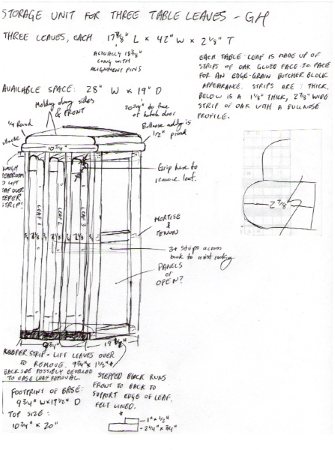 STORAGE UNIT FOR THREE TABLE LEAVES - GH
THREE LEAVES, EACH 17 3/8" L x 42" W x 2 1/8" T
ACTUALLY 18 3/8"
LONG WITH
ALIGNMENT PINS
EACH TABLE LEAF IS MADE UP OF
STRIPS OF OAK GLUED FACE TO FACE
FOR AN EDGE-GRAIN BUTCHER BLOCK
APPEARANCE. STRIPS ARE 1" THICK.
BELOW IS A 1 1/8" THICK, 2 7/8" WIDE
STRIP OF OAK WITH A BULLNOSE
PROFILE.
AVAILABLE SPACE: 28" W x 19" D
Molding along sides
& FRONT
Bullnose molding is
1/2" proud
2 7/8"
Grip hole to
remove leaf.
LEAF 1
LEAF 2
LEAF 3
MORTISE &
TENON
3+ strips across
back to resist racking
PANELS
OR OPEN?
RUBBER STRIP - LIFT LEAVES OVER
TO REMOVE.
BACK SIDE POSSIBLY BEVELED
TO EASE LEAF REMOVAL
STEPPED BLOCK RUNS
FRONT TO BACK TO
SUPPORT EDGE OF LEAF.
FELT LINED.
FOOTPRINT OF BASE:
9 3/4" W x 19 1/2" D
TOP SIZE:
10 3/4" x 20"